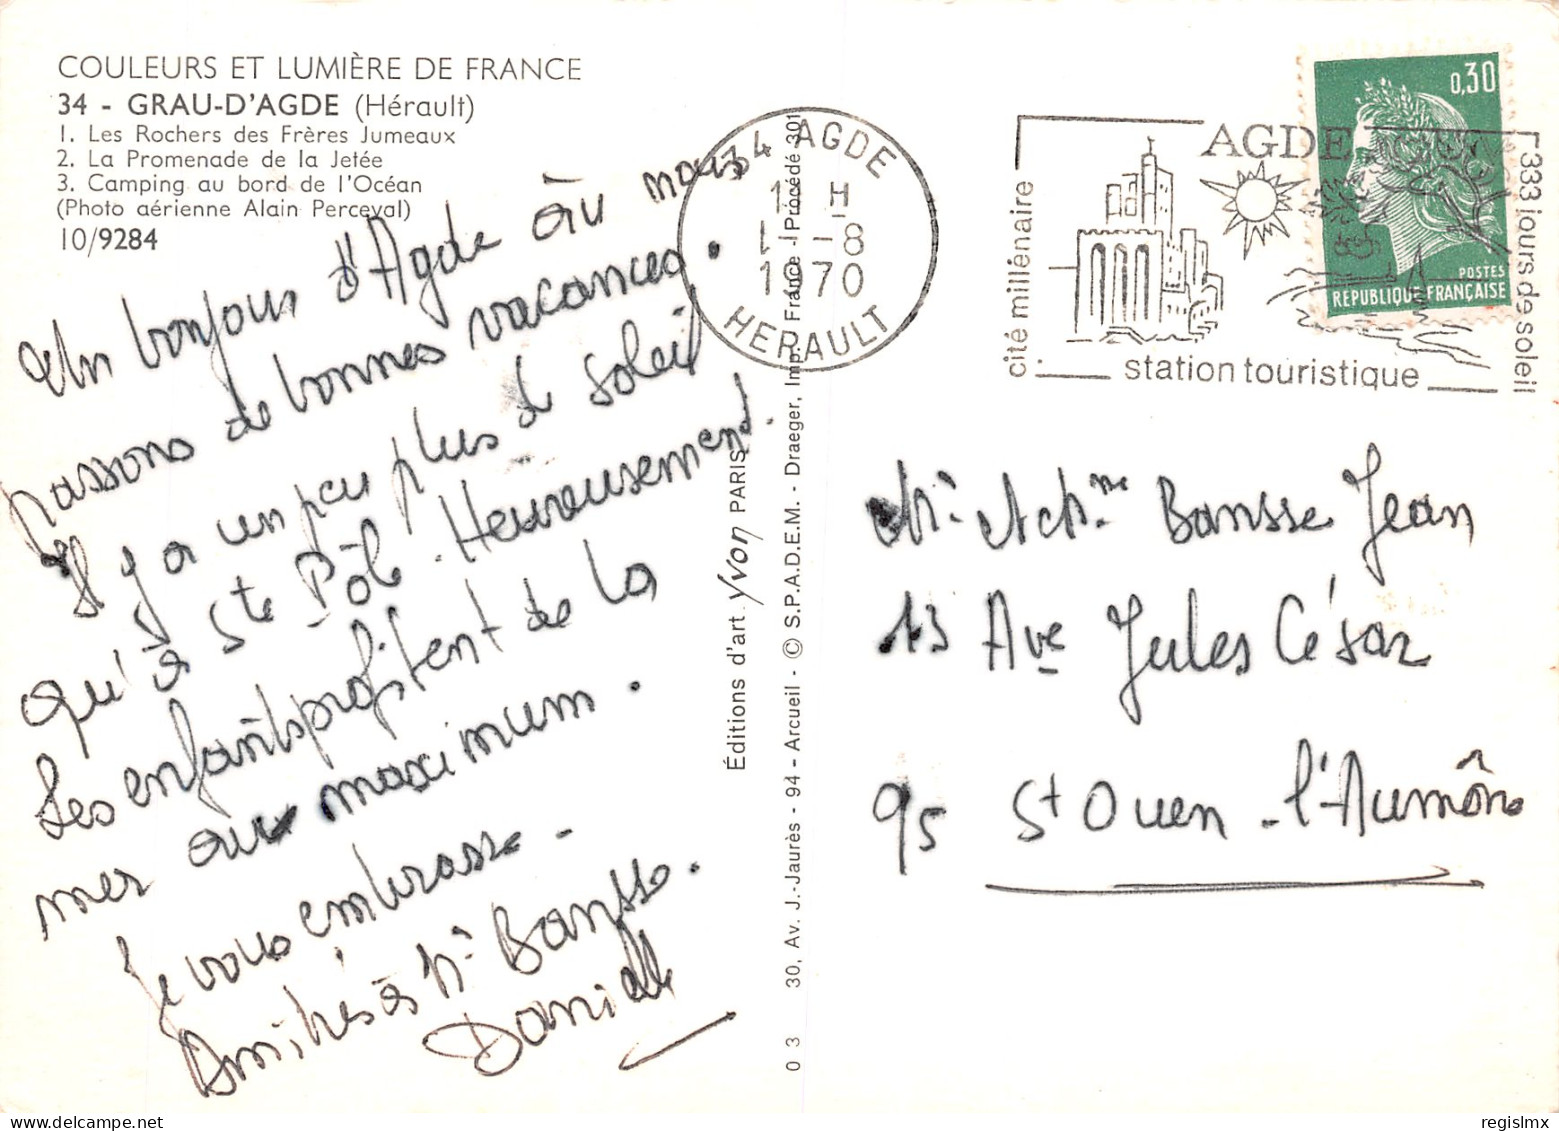 COULEURS ET LUMIÈRE DE FRANCE
34 - GRAU-D'AGDE (Hérault)
1. Les Rochers des Frères Jumeaux
2. La Promenade de la Jetée
3. Camping au bord de l'Océan
(Photo aérienne Alain Perceval)
10/9284
Un bonjour d'Agde où nous
passons de bonnes vacances.
Il y a un peu plus de soleil
qu'à Ste Pôle. Heureusement.
Les enfants profitent de la
mer au maximum.
Je vous embrasse -
Amitiés à Mr Bansse.
Danielle
Éditions d'art yvon PARIS
03 30, Av. J.-Jaurès - 94 - Arcueil - © S.P.A.D.E.M. - Draeger, Imp. France - Procédé 301
34 AGDE
H
1 - 8
1970
HERAULT
AGDE
cité millénaire
station touristique
333 jours de soleil
0,30
POSTES
REPUBLIQUE FRANÇAISE
Mr et Mme Bansse Jean
13 Ave Jules César
95 St Ouen-l'Aumône
regislmx